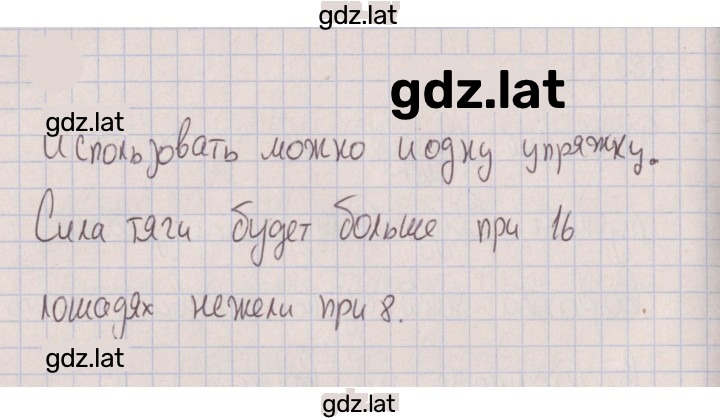 gdz.lat
gdz.lat
gdz.lat
использовать можно и одну упряжку.
Сила тяги будет больше при 16
лошадях нежели при 8.
gdz.lat
gdz.lat